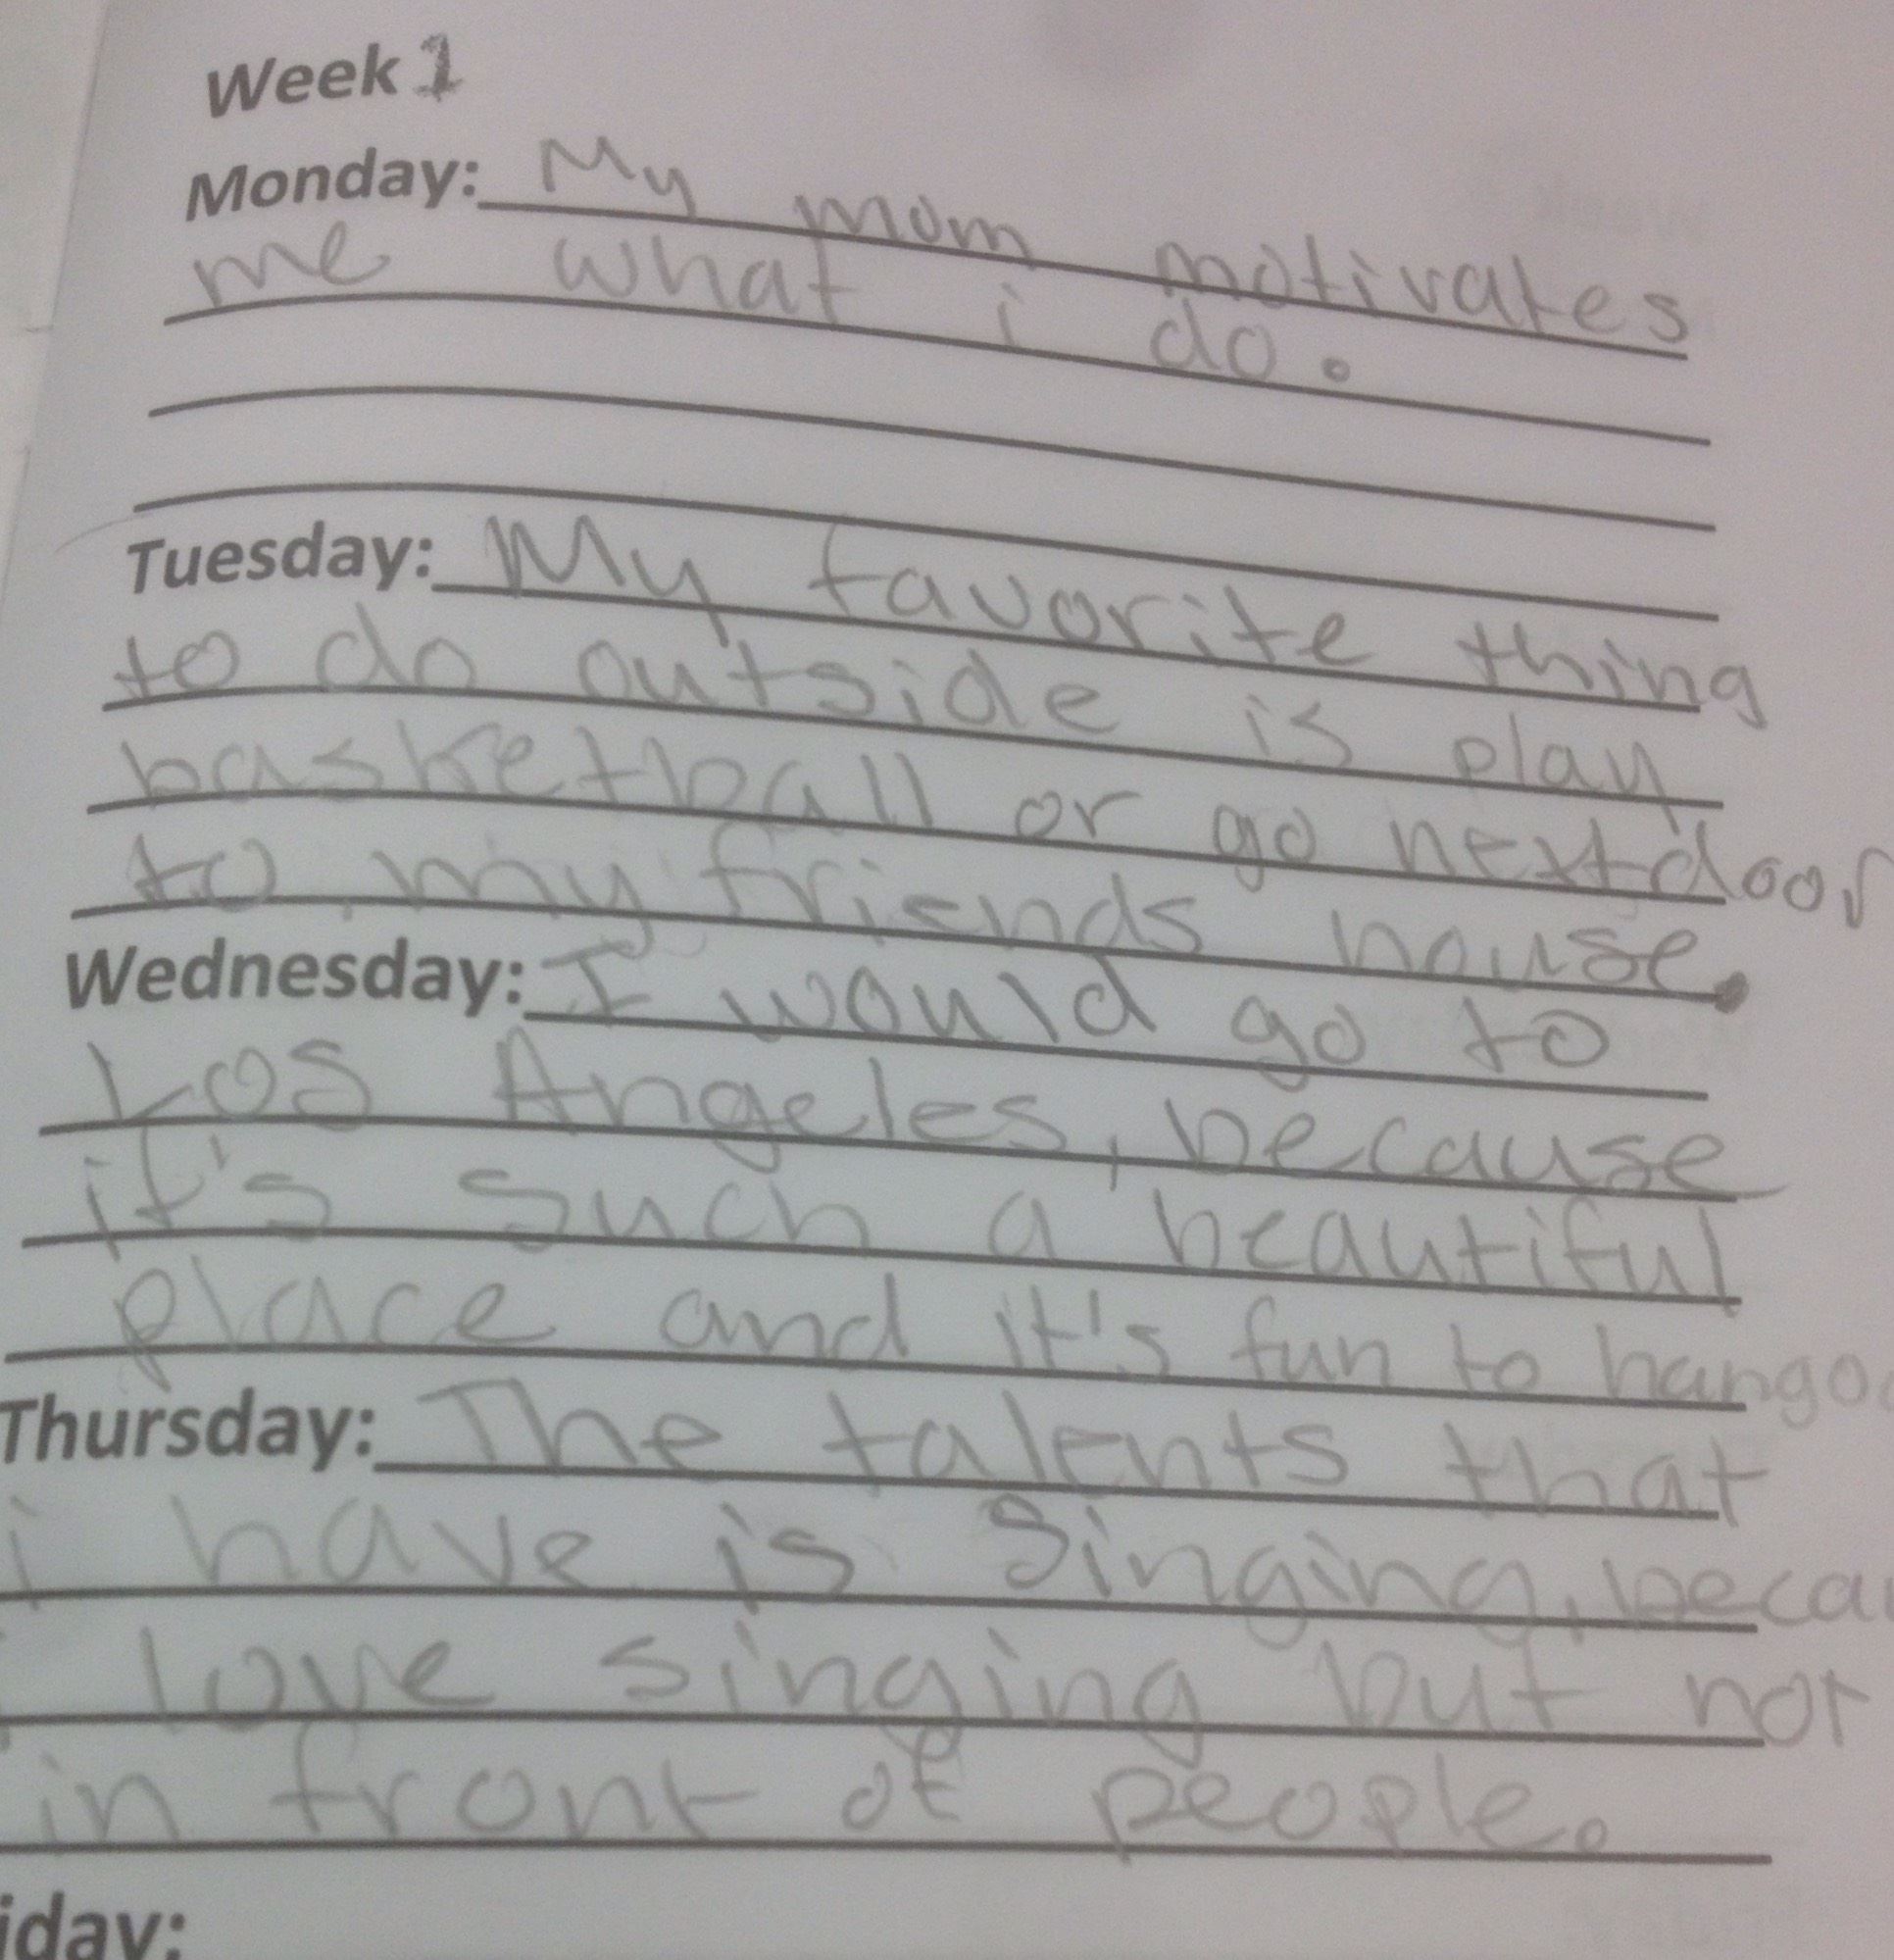 Week 1
Monday: My mom motivates
me what i do.
Tuesday: My favorite thing
to do outside is play
basketball or go nextdoor
to my friends house.
Wednesday: I would go to
Los Angeles, because
it's such a beautiful
place and it's fun to
Thursday: The talents that
i have is Singing,
i love singing but not
in front of people.